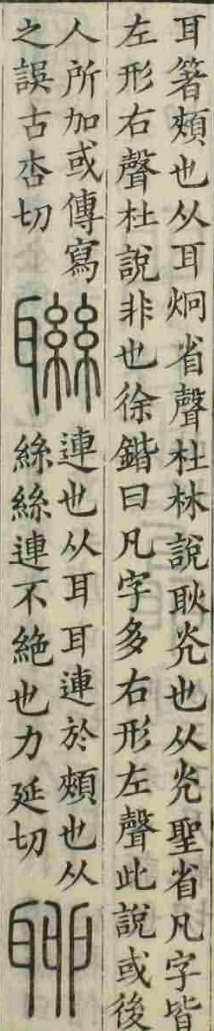 耳箸頰也从耳炯省聲杜林說耿灮也从灮聖省凡字皆
左形右聲杜說非也徐鍇曰凡字多右形左聲此說或後
人所加或傳寫
之誤古杏切
聯
連也从耳耳連於頰也从
絲絲連不絶也力延切
聊